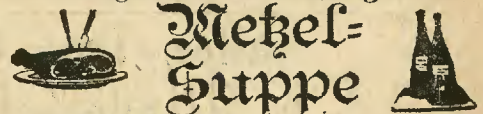 Metzel=
Suppe